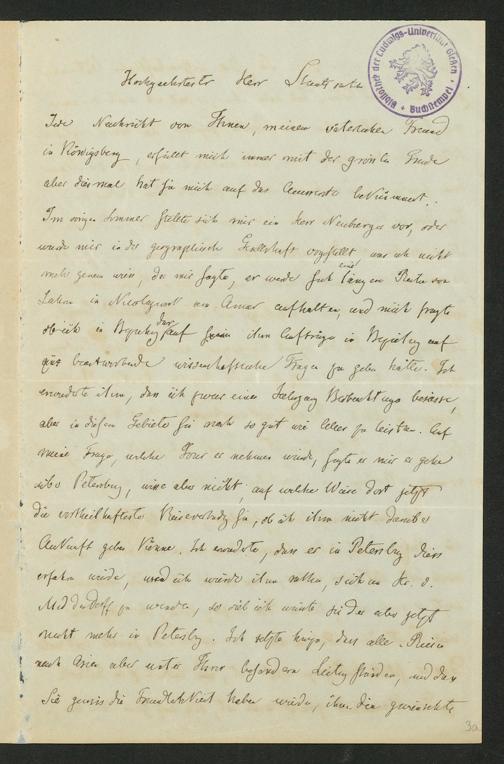 Hochgeehrtester Herr Staatsrath
Bibliothek der Ludwigs-Universität Gießen
Buchstempel
Jede Nachricht von Ihnen, meinem väterlichen Freund
in Königsberg, erfüllt mich immer mit der größten Freude
aber diesmal hat sie mich auf das Aeusserste bekümmert.
Im vorigen Sommer stellte sich mir ein Herr Neuberger vor, oder
wurde mir in der geographischen Gesellschaft vorgestellt, was ich nicht
mehr genau weiss, der mir sagte, er werde sich eine längere Reihe von
Jahren in Nicolajewsk am Amur aufhalten, und mich fragte
ob ich in Beziehung auf ihm Aufträge in Beziehung auf
beantwortende wissenschaftliche Fragen zu geben hätte. Ich
erwiderte ihm, dass ich zwar eine Beobachtungs besässe,
aber in diesem Gebiete sei noch so gut wie Alles zu leisten. Auf
meine Frage, welche Tour er nehmen würde, sagte er mir er gehe
über Petersburg, wisse aber nicht, auf welche Weise dort jetzt
die vortheilhafteste Reiseverbindung sei, ob ich ihm nicht darüber
Auskunft geben könne. Ich erwiderte, dass er in Petersburg dies
erfahren würde, und ich würde ihm rathen, sich an Hr. v.
Middendorff zu wenden, so viel ich wüsste sei der aber jetzt
nicht mehr in Petersburg. Ich setzte hinzu, dass alle Reisen
nach Asien aber unter Ihrer besondern Leitung ständen, und dass
Sie gewiss die Freundlichkeit haben würden, ihm die gewünschte
3a